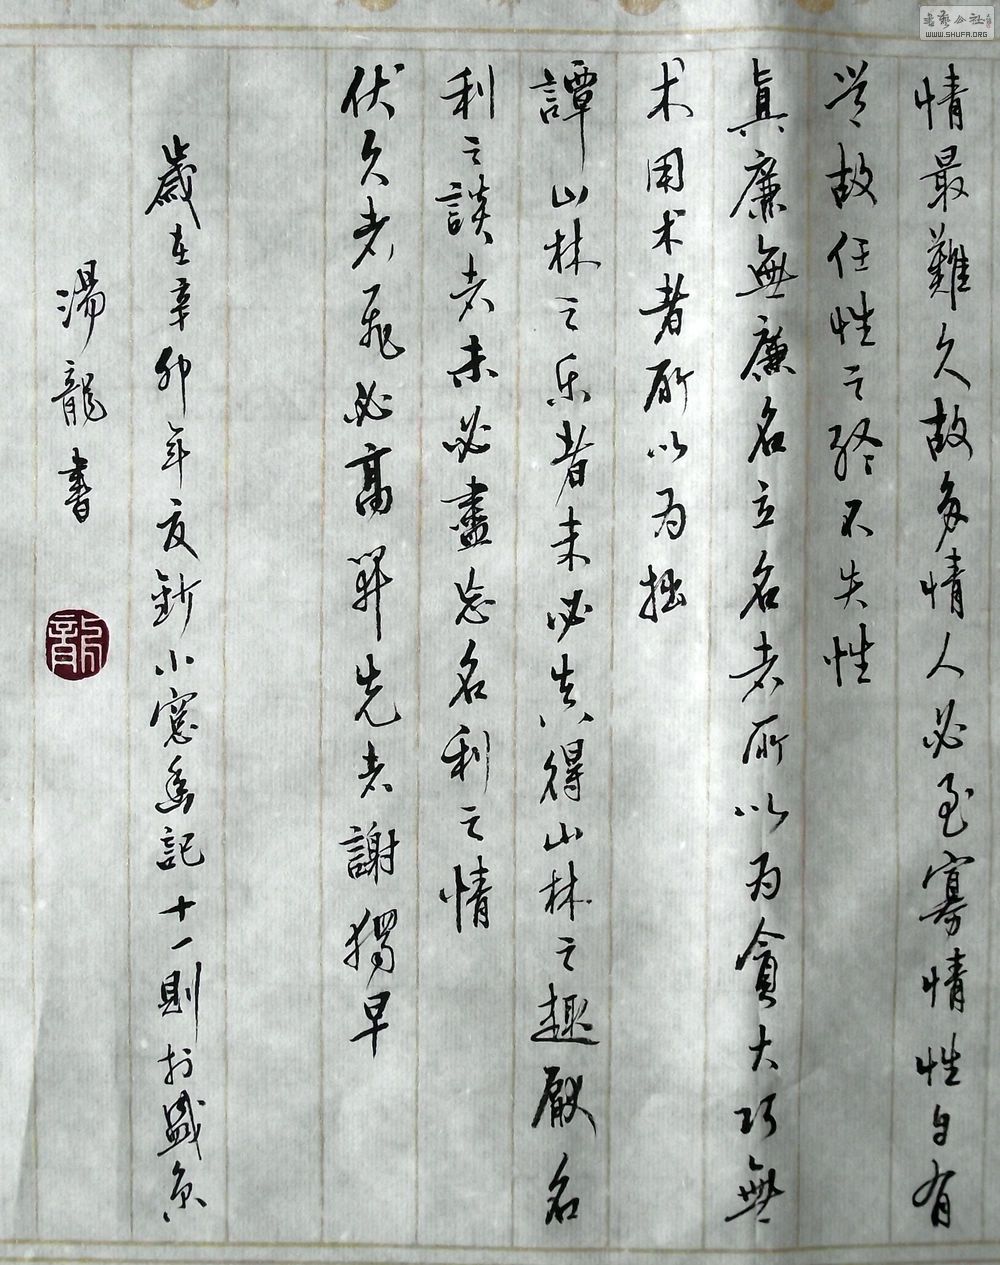 情最難久故多情人必至寡情性自有
常故任性之終不失性
真廉無廉名立名者所以為貪大巧無
术用术者所以为拙
譚山林之乐者未必真得山林之趣厭名
利之談者未必盡忘名利之情
伏久者飛必高開先者謝獨早
歲在辛卯年夏鈔小窓幽記十一則於盛京
湯龍書
龍
書藝公社
WWW.SHUFA.ORG